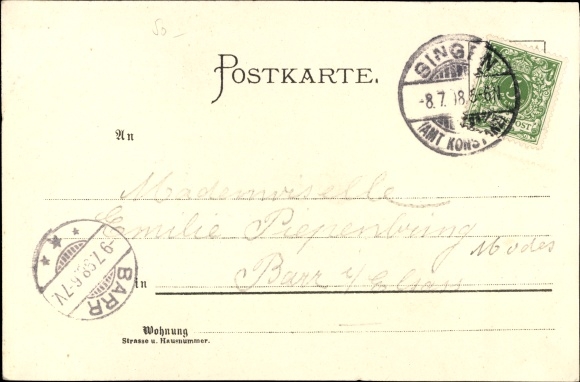 50
POSTKARTE.
SINGEN
-8.7.98.5-6N
(AMT KONSTANZ)
5
POST
An
Mademoiselle
Emilie Piepenbring
Modes
in Barr i/Elsass
-9.7.98.6-7V.
BARR
Wohnung
Strasse u. Hausnummer.